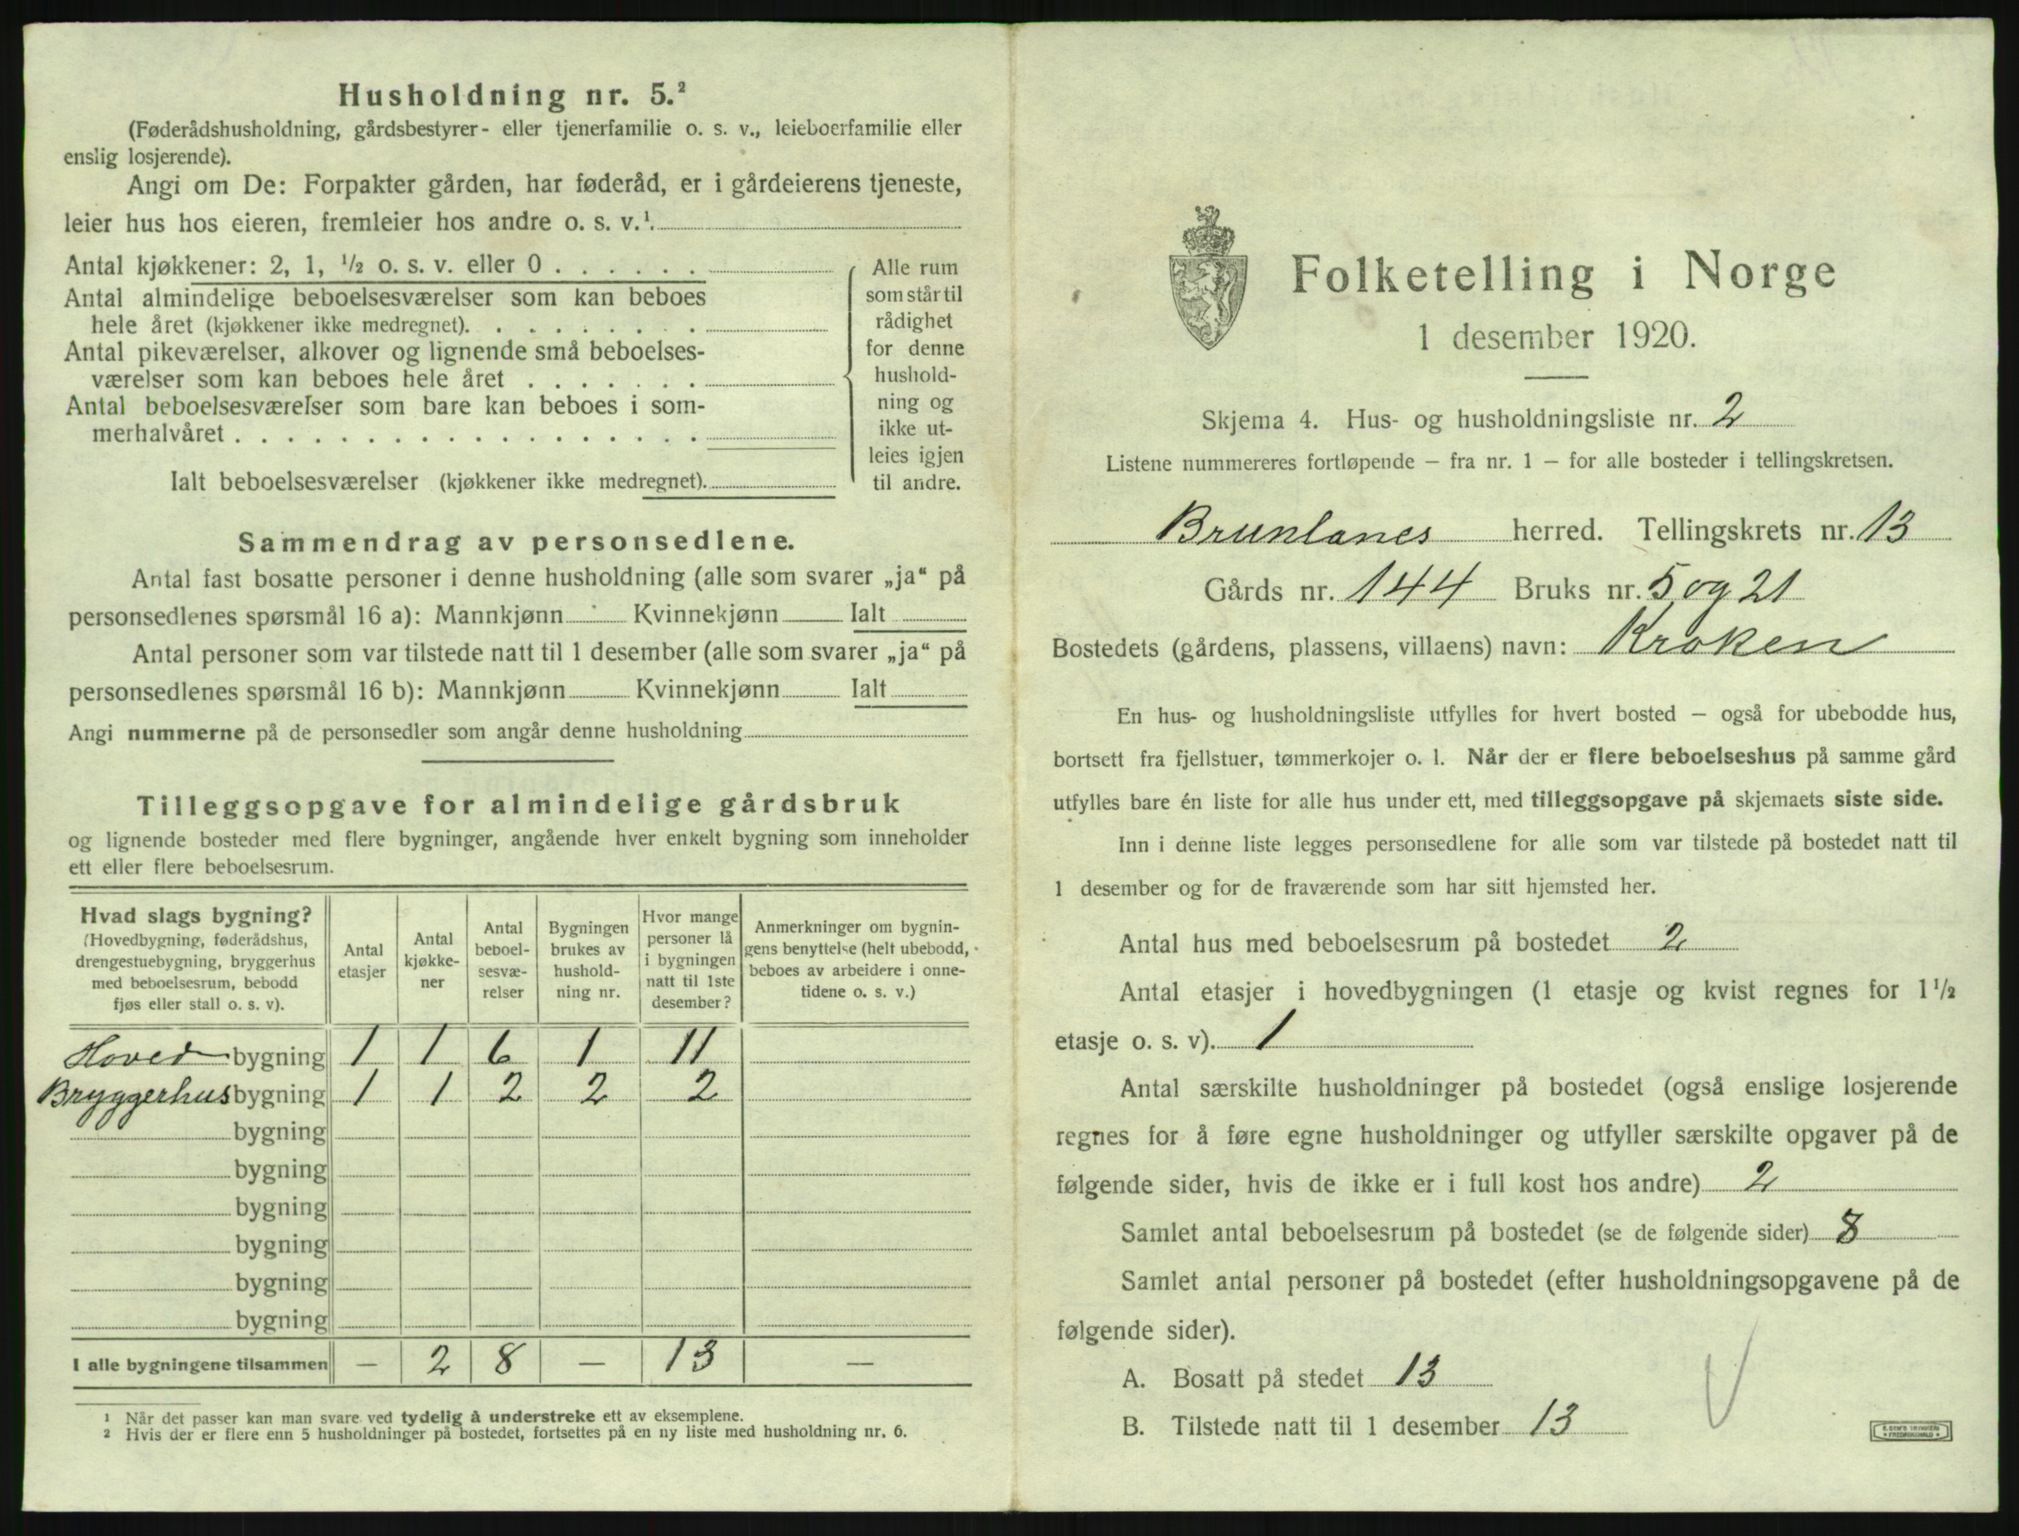 Husholdning nr. 5.²
(Føderådshusholdning, gårdsbestyrer- eller tjenerfamilie o. s. v., leieboerfamilie eller
enslig losjerende).
Angi om De: Forpakter gården, har føderåd, er i gårdeierens tjeneste,
leier hus hos eieren, fremleier hos andre o. s. v.¹.
Antal kjøkkener: 2, 1, ½ o. s. v. eller 0 . . . . . .
Antal almindelige beboelsesværelser som kan beboes
hele året (kjøkkener ikke medregnet). . . . . . . . .
Antal pikeværelser, alkover og lignende små beboelses-
værelser som kan beboes hele året . . . . . . .
Antal beboelsesværelser som bare kan beboes i som-
merhalvåret . . . . . . . . . . . . . . . . . .
Ialt beboelsesværelser (kjøkkener ikke medregnet).
Alle rum
som står til
rådighet
for denne
hushold-
ning og
ikke ut-
leies igjen
til andre.
Sammendrag av personsedlene.
Antal fast bosatte personer i denne husholdning (alle som svarer „ja“ på
personsedlenes spørsmål 16 a): Mannkjønn Kvinnekjønn Ialt
Antal personer som var tilstede natt til 1 desember (alle som svarer „ja“ på
personsedlenes spørsmål 16 b): Mannkjønn Kvinnekjønn Ialt
Angi nummerne på de personsedler som angår denne husholdning
Tilleggsopgave for almindelige gårdsbruk
og lignende bosteder med flere bygninger, angående hver enkelt bygning som inneholder
ett eller flere beboelsesrum.
Hvad slags bygning?
(Hovedbygning, føderådshus,
drengestuebygning, bryggerhus
med beboelsesrum, bebodd
fjøs eller stall o. s. v).
Antal
etasjer
Antal
kjøkke-
ner
Antal
beboel-
sesvæ-
relser
Bygningen
brukes av
hushold-
ning nr.
Hvor mange
personer lå
i bygningen
natt til 1ste
desember?
Anmerkninger om bygnin-
gens benyttelse (helt ubebodd,
beboes av arbeidere i onne-
tidene o. s. v.)
Hoved bygning 1 1 6 1 11
Bryggerhus bygning 1 1 2 2 2
bygning
bygning
bygning
bygning
bygning
bygning
I alle bygningene tilsammen — 2 8 — 13 —
¹ Når det passer kan man svare ved tydelig å understreke ett av eksemplene.
² Hvis der er flere enn 5 husholdninger på bostedet, fortsettes på en ny liste med husholdning nr. 6.
Folketelling i Norge
1 desember 1920.
Skjema 4. Hus- og husholdningsliste nr. 2
Listene nummereres fortløpende – fra nr. 1 – for alle bosteder i tellingskretsen.
Brunlanes herred. Tellingskrets nr. 13
Gårds nr. 144 Bruks nr. 5 og 21
Bostedets (gårdens, plassens, villaens) navn: Kroken
En hus- og husholdningsliste utfylles for hvert bosted – også for ubebodde hus,
bortsett fra fjellstuer, tømmerkojer o. l. Når der er flere beboelseshus på samme gård
utfylles bare én liste for alle hus under ett, med tilleggsopgave på skjemaets siste side.
Inn i denne liste legges personsedlene for alle som var tilstede på bostedet natt til
1 desember og for de fraværende som har sitt hjemsted her.
Antal hus med beboelsesrum på bostedet 2
Antal etasjer i hovedbygningen (1 etasje og kvist regnes for 1½
etasje o. s. v). 1
Antal særskilte husholdninger på bostedet (også enslige losjerende
regnes for å føre egne husholdninger og utfyller særskilte opgaver på de
følgende sider, hvis de ikke er i full kost hos andre) 2
Samlet antal beboelsesrum på bostedet (se de følgende sider) 8
Samlet antal personer på bostedet (efter husholdningsopgavene på de
følgende sider).
A. Bosatt på stedet 13
B. Tilstede natt til 1 desember 13